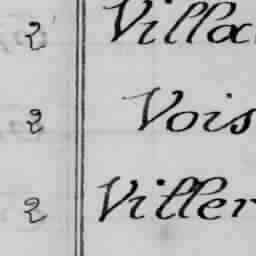 2 Villac
2 Vois
2 Viller